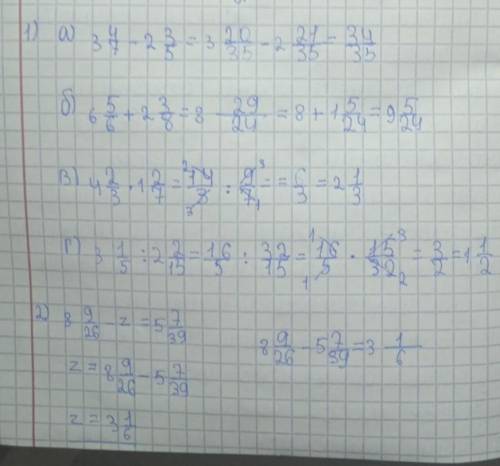 1) а) 3 4/7 - 2 3/5 = 3 20/35 - 2 21/35 = 34/35
б) 6 5/6 + 2 3/8 = 8 29/24 = 8 + 1 5/24 = 9 5/24
в) 4 2/3 · 1 2/7 = 14/3 · 9/7 = = 6/3 = 2 1/3
г) 3 1/5 : 2 2/15 = 16/5 : 32/15 = 16/5 · 15/32 = 3/2 = 1 1/2
2) 8 9/26 - z = 5 7/39
8 9/26 - 5 7/39 = 3 1/6
z = 8 9/26 - 5 7/39
z = 3 1/6